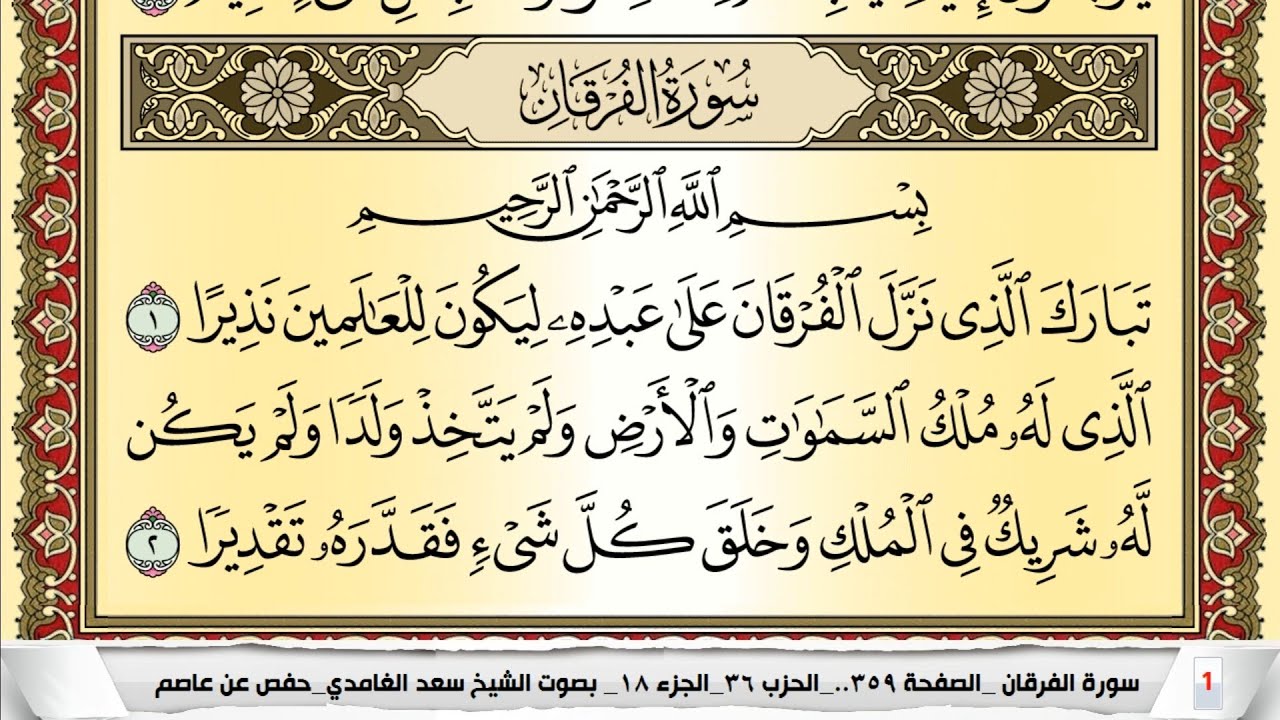 سُورَةُ الْفُرْقَانِ
بِسْمِ ٱللَّهِ ٱلرَّحْمَٰنِ ٱلرَّحِيمِ
تَبَارَكَ ٱلَّذِى نَزَّلَ ٱلْفُرْقَانَ عَلَىٰ عَبْدِهِۦ لِيَكُونَ لِلْعَٰلَمِينَ نَذِيرًا ١
ٱلَّذِى لَهُۥ مُلْكُ ٱلسَّمَٰوَٰتِ وَٱلْأَرْضِ وَلَمْ يَتَّخِذْ وَلَدًا وَلَمْ يَكُن
لَّهُۥ شَرِيكٌ فِى ٱلْمُلْكِ وَخَلَقَ كُلَّ شَىْءٍ فَقَدَّرَهُۥ تَقْدِيرًا ٢
1 سورة الفرقان _الصفحة ٣٥٩.._الحزب ٣٦_الجزء ١٨_ بصوت الشيخ سعد الغامدي_حفص عن عاصم